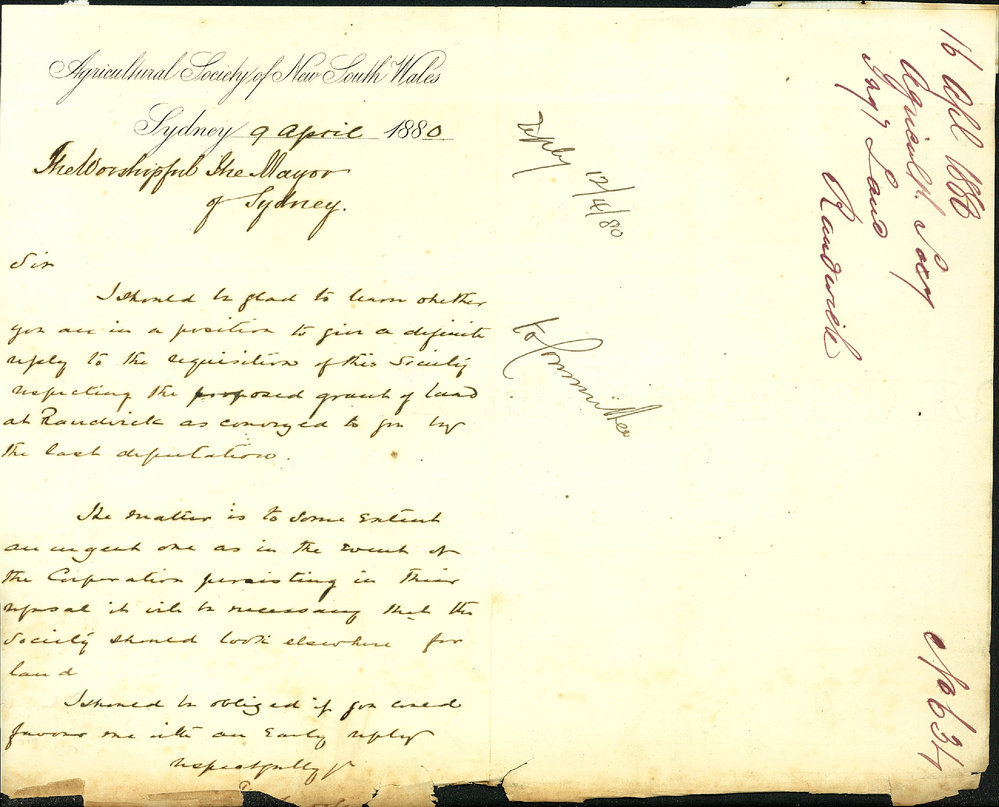 Agricultural Society of New South Wales
Sydney 9 April 1880
The Worshipful The Mayor
of Sydney.
Sir
I should be glad to learn whether
you are in a position to give a definite
reply to the requisition of this Society
respecting the proposed grant of land
at Randwick as conveyed to you by
the last deputation.
The matter is to some extent
an urgent one as in the event of
the Corporation persisting in their
refusal it will be necessary that the
Society should look elsewhere for
land
I should be obliged if you could
favour me with an Early reply
respectfully yr
Reply 12/4/80
to Committee
16 Apl 1880
Agricultl. Socy
Land
Randwick
No 634